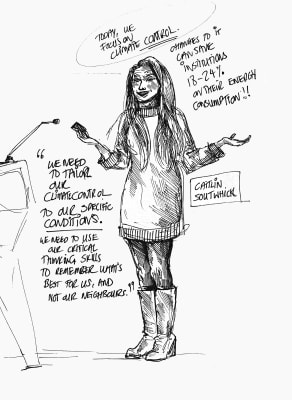 TODAY, WE
FOCUS ON
CLIMATE CONTROL.
CHANGES TO IT
CAN SAVE
INSTITUTIONS
18-24%
ON THEIR ENERGY
CONSUMPTION!!
"WE NEED
TO TAILOR
OUR
CLIMATE CONTROL
TO OUR SPECIFIC
CONDITIONS.
WE NEED TO USE
OUR CRITICAL
THINKING SKILLS
TO REMEMBER WHAT'S
BEST FOR US, AND
NOT OUR NEIGHBOURS."
CAITLIN
SOUTHWICK